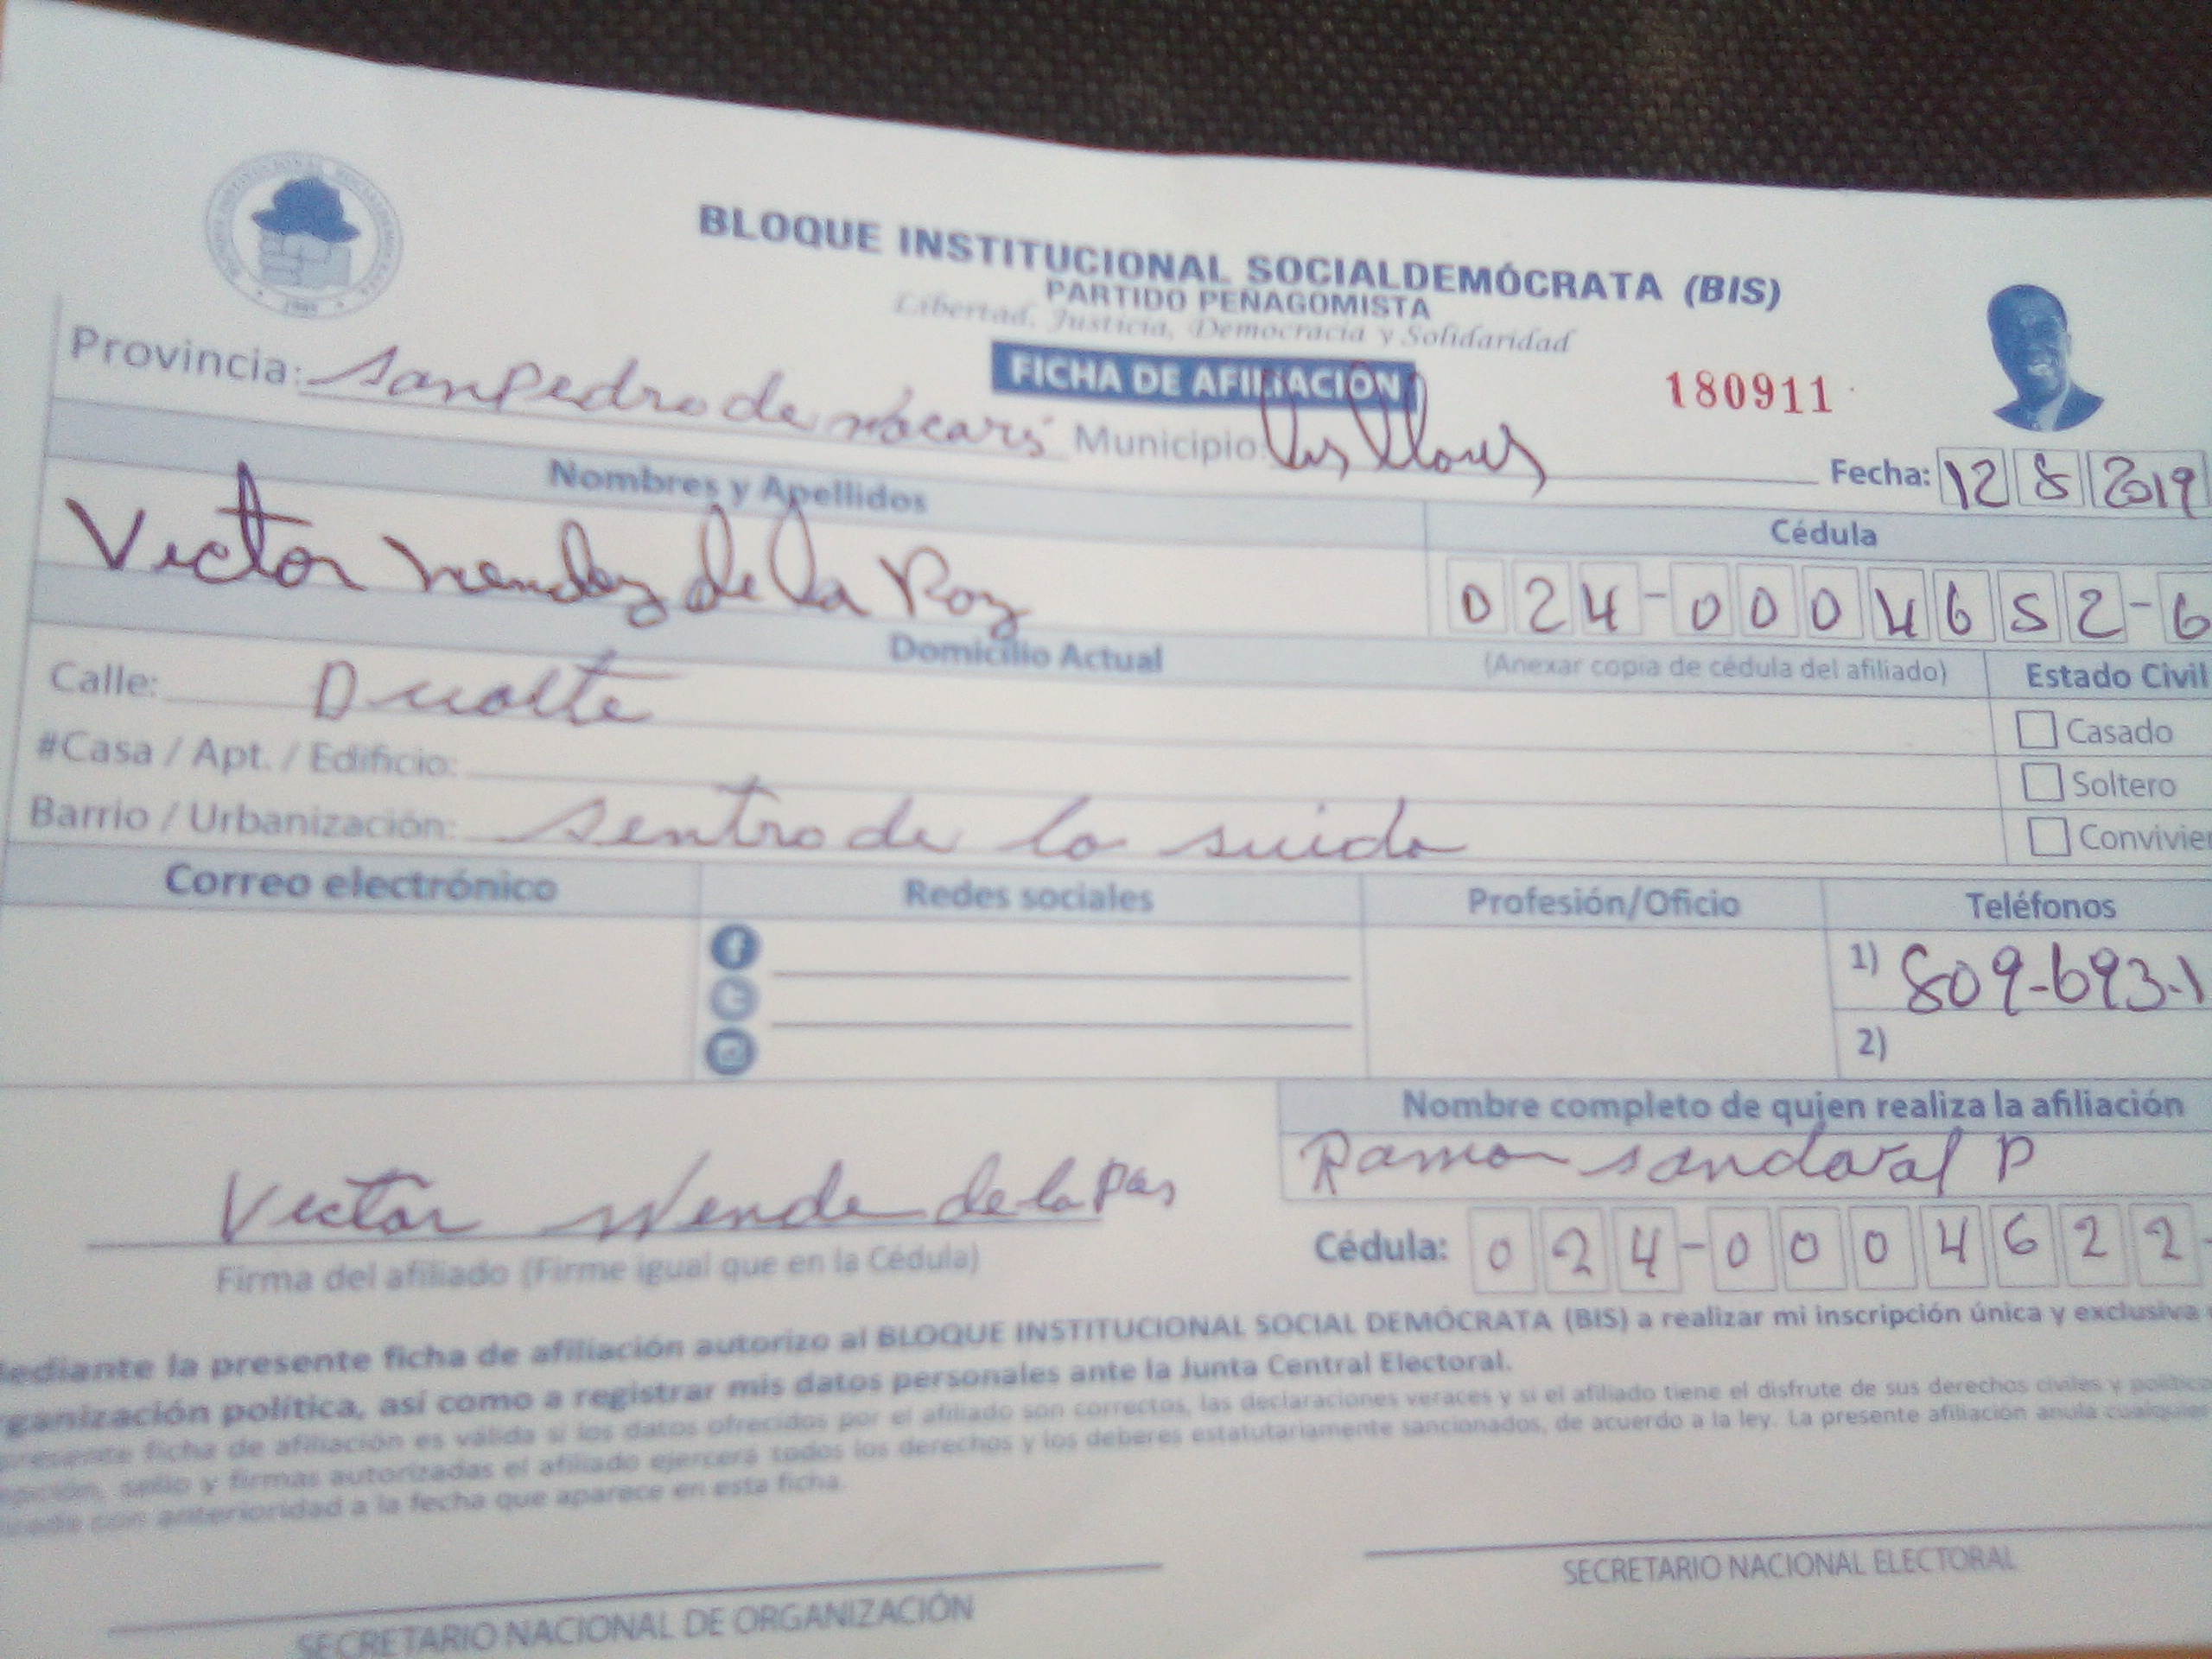 BLOQUE INSTITUCIONAL SOCIALDEMÓCRATA (BIS)
PARTIDO PEÑAGOMISTA
Libertad, Justicia, Democracia y Solidaridad
FICHA DE AFILIACIÓN
180911
Provincia: san Pedro de mácarí Municipio: los llanos
Fecha: 12 8 2019
Nombres y Apellidos
Cédula
Victor Mendez de la Paz
024-0004652-6
Domicilio Actual
(Anexar copia de cédula del afiliado)
Estado Civil
Calle: Duarte
Casado
#Casa / Apt. / Edificio:
Soltero
Barrio / Urbanización: sentro de la suida
Convivie
Correo electrónico
Redes sociales
Profesión/Oficio
Teléfonos
1) 809-693-1
2)
Nombre completo de quien realiza la afiliación
Ramon sandoval P
Victor Mende de la Pas
Firma del afiliado (Firme igual que en la Cédula)
Cédula: 024-0004622-
ediante la presente ficha de afiliación autorizo al BLOQUE INSTITUCIONAL SOCIAL DEMÓCRATA (BIS) a realizar mi inscripción única y exclusiva
ganización política, así como a registrar mis datos personales ante la Junta Central Electoral.
presente ficha de afiliación es válida si los datos ofrecidos por el afiliado son correctos, las declaraciones veraces y si el afiliado tiene el disfrute de sus derechos civiles y político
sello y firmas autorizadas el afiliado ejercerá todos los derechos y los deberes estatutariamente sancionados, de acuerdo a la ley. La presente afiliación anula cualquier
con anterioridad a la fecha que aparece en esta ficha.
SECRETARIO NACIONAL DE ORGANIZACIÓN
SECRETARIO NACIONAL ELECTORAL